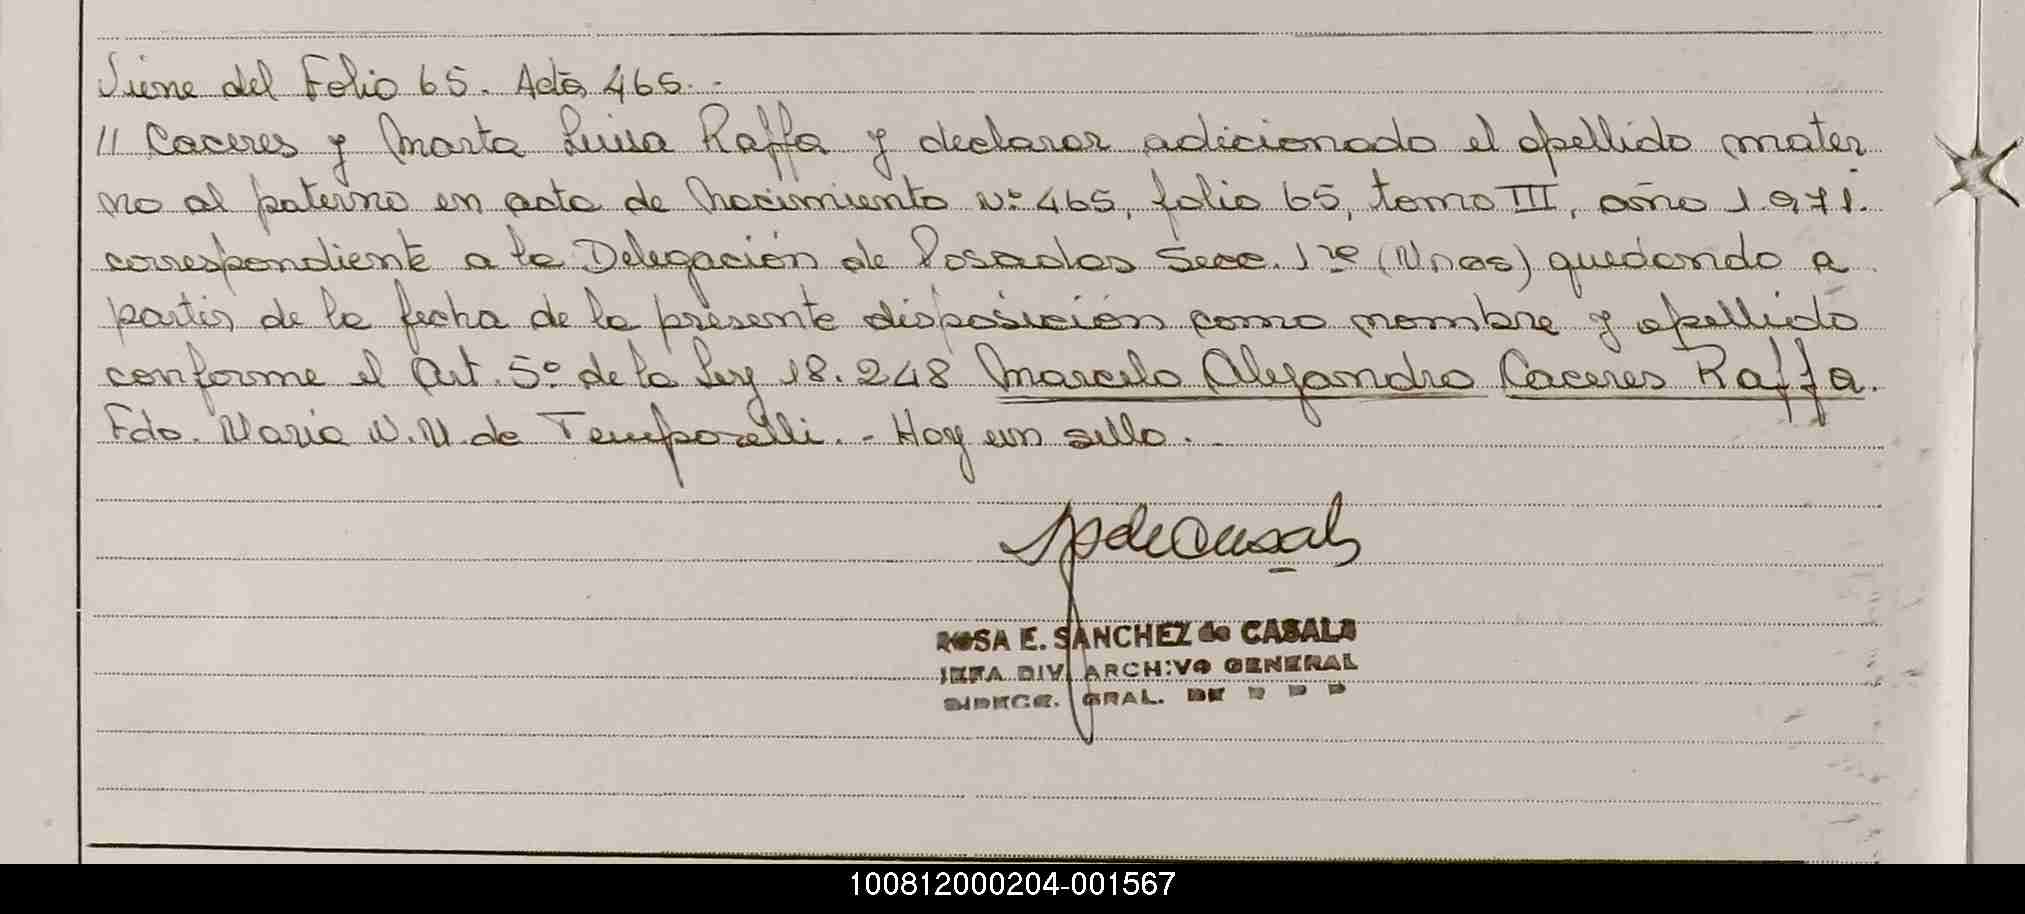 Viene del Folio 65. Acta 465.-
// Caceres y Marta Luisa Raffa y declarar adicionado el apellido mater
no al paterno en acta de Nacimiento Nº 465, folio 65, tomo III, año 1.971.
correspondiente a la Delegación de Posadas Secc. 1ra (Mnes) quedando a
partir de la fecha de la presente disposición como nombre y apellido
conforme el Art. 5º de la Ley 18.248 Marcelo Alejandro Caceres Raffa.
Fdo. Maria N. M. de Temporelli.- Hay un sello.-
ROSA E. SANCHEZ de CASALS
JEFA DIV. ARCHIVO GENERAL
DIRECC. GRAL. DE R P P
100812000204-001567